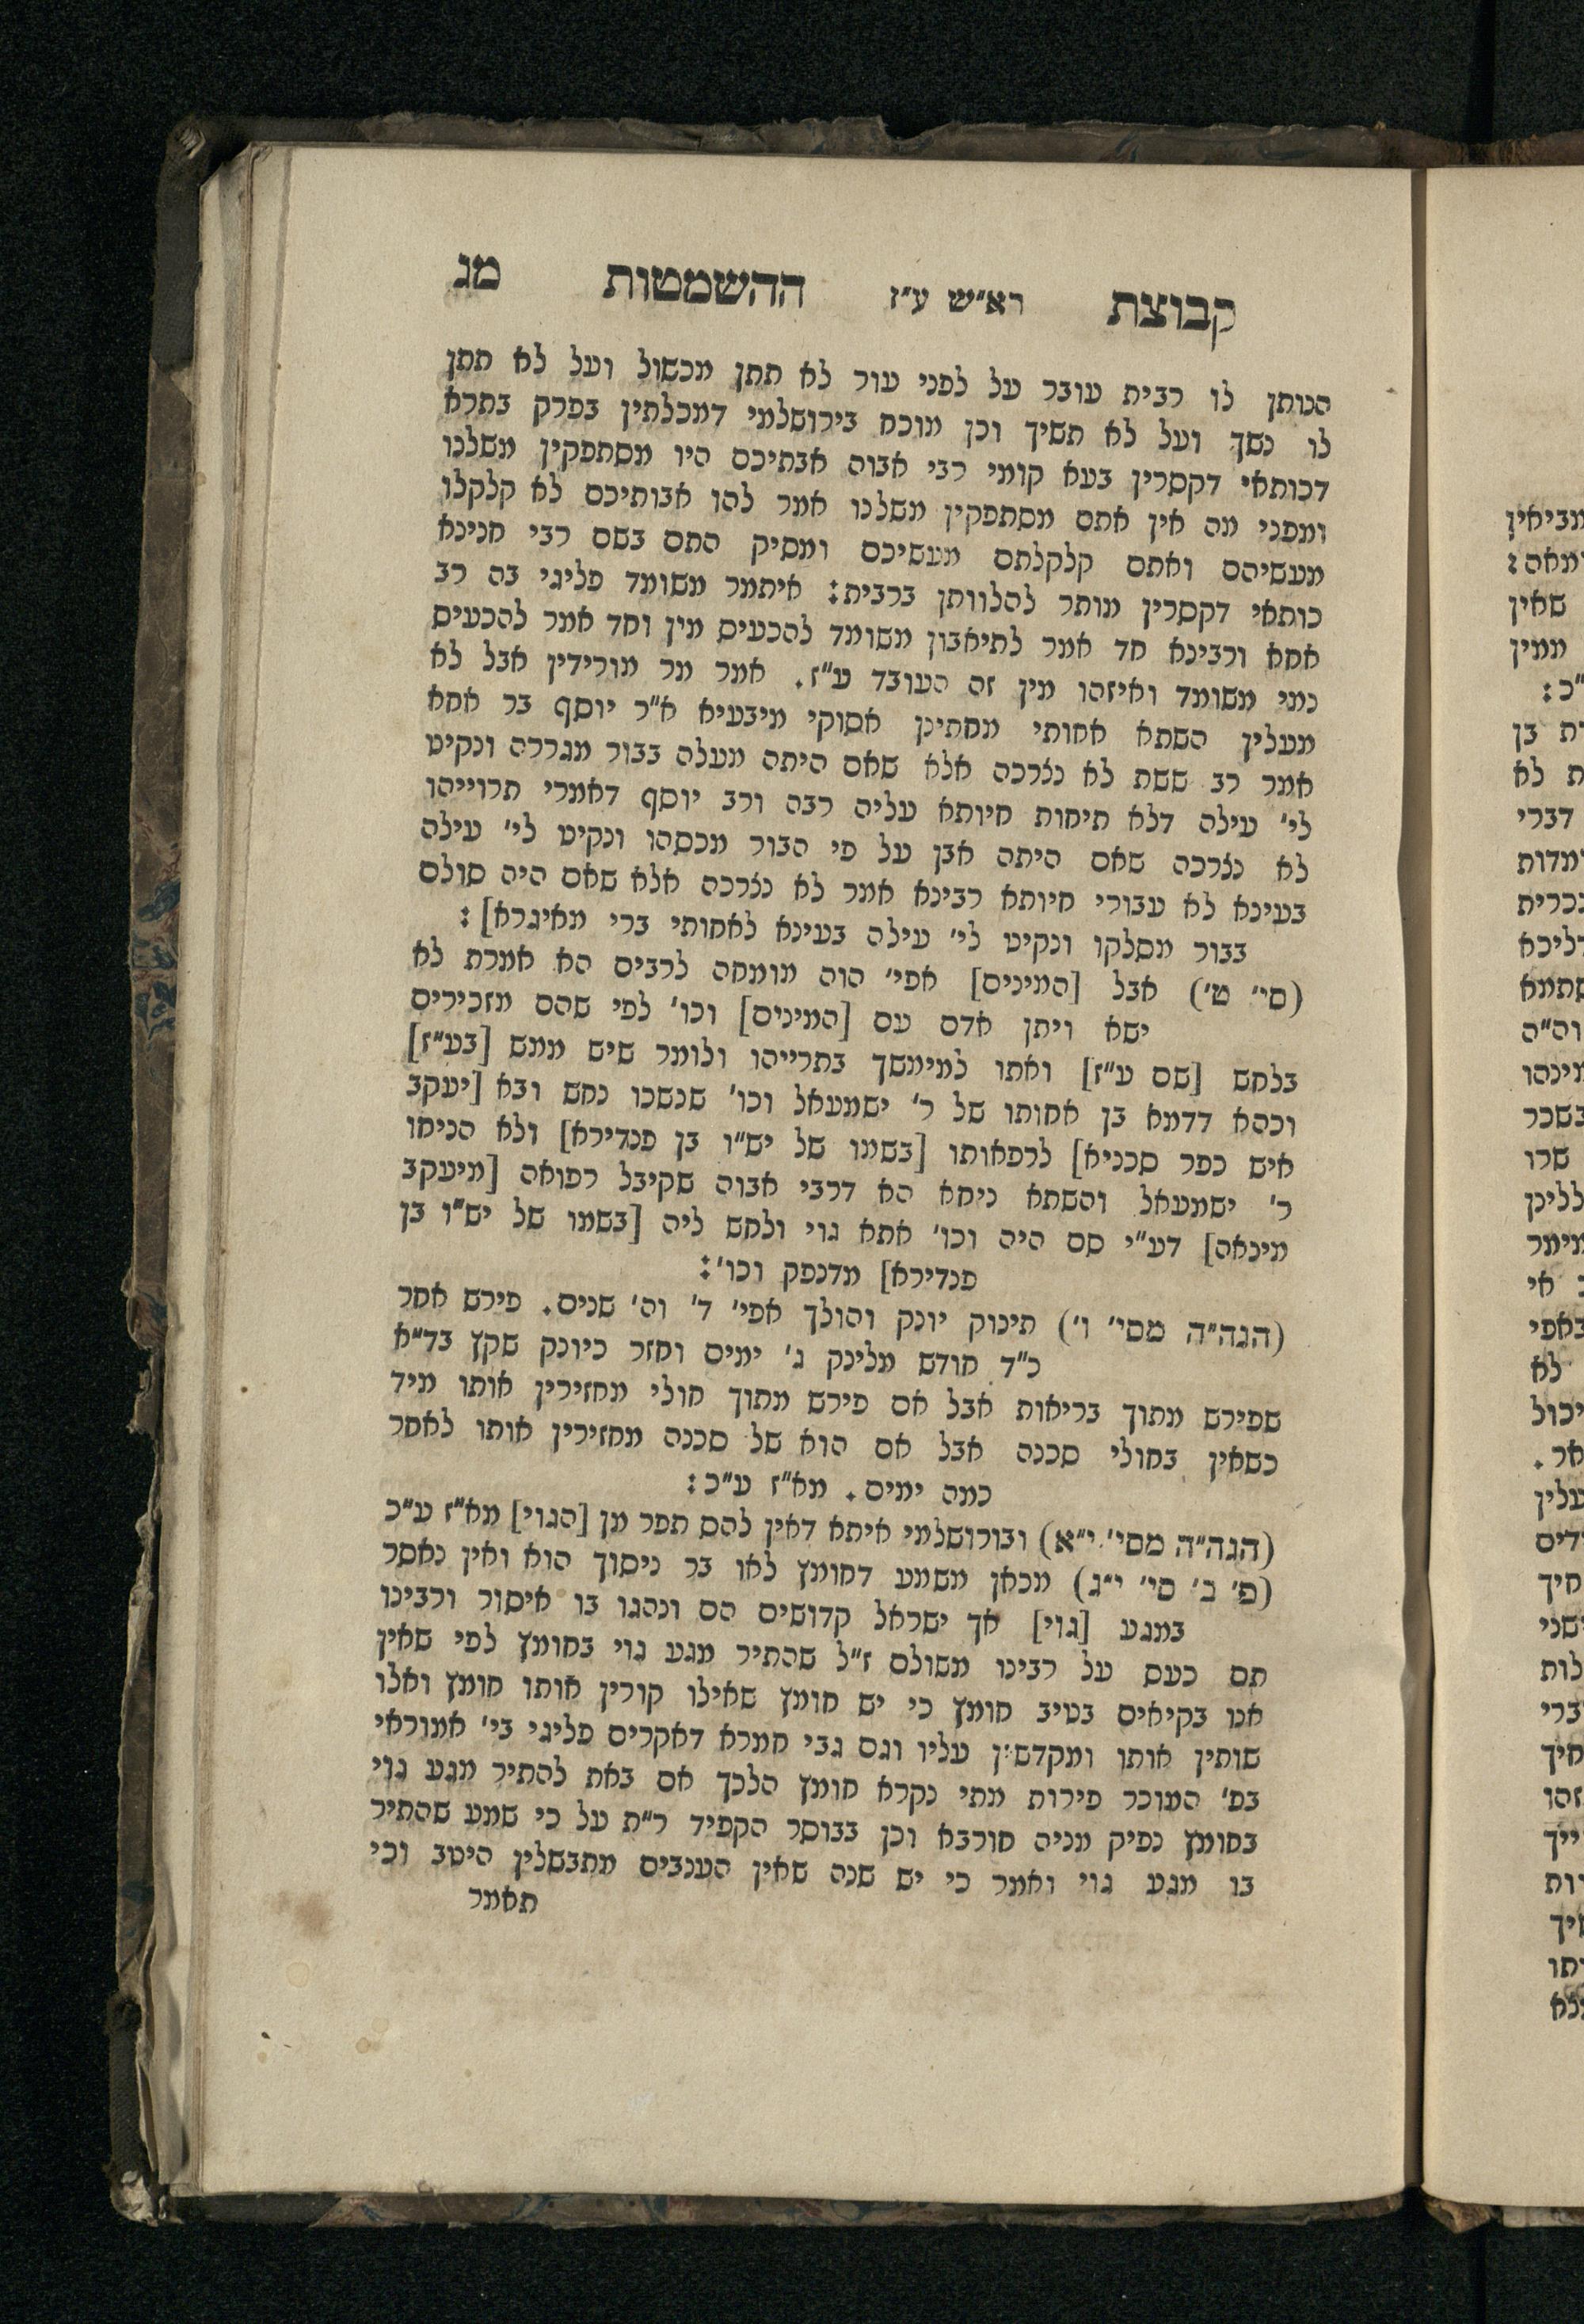 קבוצת רא״ש ע״ז ההשמטות מג
הנותן לו רבית עובר על לפני עור לא תתן מכשול ועל לא תתן
לו נשך ועל לא תשיך וכן מוכח בירושלמי דמכלתין בפרק בתרא
דכותאי דקסרין בעא קומי רבי אבוה אבתיכם היו מסתפקין משלנו
ומפני מה אין אתם מסתפקין משלנו אמר להו אבותיכם לא קלקלו
מעשיהם ואתם קלקלתם מעשיכם ומסיק התם בשם רבי חנינא
כותאי דקסרין מותר להלוותן ברבית: איתמר משומד פליגי בה רב
אחא ורבינא חד אמר לתיאבון משומד להכעים מין וחד אמר להכעים
נמי משומד ואיזהו מין זה העובד ע״ז. אמר מר מורידין אבל לא
מעלין השתא אחותי מחתינן אסוקי מיבעיא א״ר יוסף בר אחא
אמר רב ששת לא נצרכה אלא שאם היתה מעלה בבור מגררה ונקיט
לי׳ עילה דלא תיחות חיותא עליה רבה ורב יוסף דאמרי תרוייהו
לא נצרכה שאם היתה אבן על פי הבור מכסהו ונקיט לי׳ עילה
בעינא לא עבורי חיותא רבינא אמר לא נצרכה אלא שאם היה סולם
בבור מסלקו ונקיט לי׳ עילה בעינא לאחותי ברי מאיגרא]:
(סי׳ ט׳) אבל [המינים] אפי׳ הוה מומחה לרבים הא אמרת לא
ישא ויתן אדם עם [המינים] וכו׳ לפי שהם מזכירים
בלחש [שם ע״ז] ואתו למימשך בתרייהו ולומר שיש ממש [בע״ז]
וכהא דדמא בן אחותו של ר׳ ישמעאל וכו׳ שנשכו נחש ובא [יעקב
איש כפר סכניא] לרפאותו [בשמו של יש״ו בן פנדירא] ולא הניחו
ר׳ ישמעאל והשתא ניחא הא דרבי אבוה שקיבל רפואה [מיעקב
מינאה] דע״י סם היה וכו׳ אתא גוי ולחש ליה [בשמו של יש״ו בן
פנדירא] מדנפק וכו׳:
(הגה״ה מסי׳ ו׳) תינוק יונק והולך אפי׳ ד׳ וה׳ שנים. פירש אחר
כ״ד חודש מלינק ג׳ ימים וחזר כיונק שקץ בד״א
שפירש מתוך בריאות אבל אם פירש מתוך חולי מחזירין אותו מיד
כשאין בחולי סכנה אבל אם הוא של סכנה מחזירין אותו לאחר
כמה ימים. מא״ז ע״כ:
(הגה״ה מסי׳ י״א) ובורושלמי איתא דאין להם תפר מן [הגוי] מא״ז ע״כ
(פ׳ ב׳ סי׳ י״ג) מכאן משמע דחומץ לאו בר ניסוך הוא ואין נאסר
במגע [גוי] אך ישראל קדושים הם ונהגו בו איסור ורבינו
תם כעס על רבינו משולם ז״ל שהתיר מגע גוי בחומץ לפי שאין
אנו בקיאים בטיב חומץ כי יש חומץ שאילו קורין אותו חומץ ואלו
שותין אותו ומקדשין עליו וגם גבי חמרא דאקרים פליגי בי׳ אמוראי
בפ׳ המוכר פירות מתי נקרא חומץ הלכך אם באת להתיר מגע גוי
בחומץ נפיק מניה חורבא וכן בבוסר הקפיד ר״ת על כי שמע שהתיר
בו מגע גוי ואמר כי יש שנה שאין הענבים מתבשלין היטב וכי
תאמר
מביאין
שאין
ממין
ת לא
דברי
שרו
לא